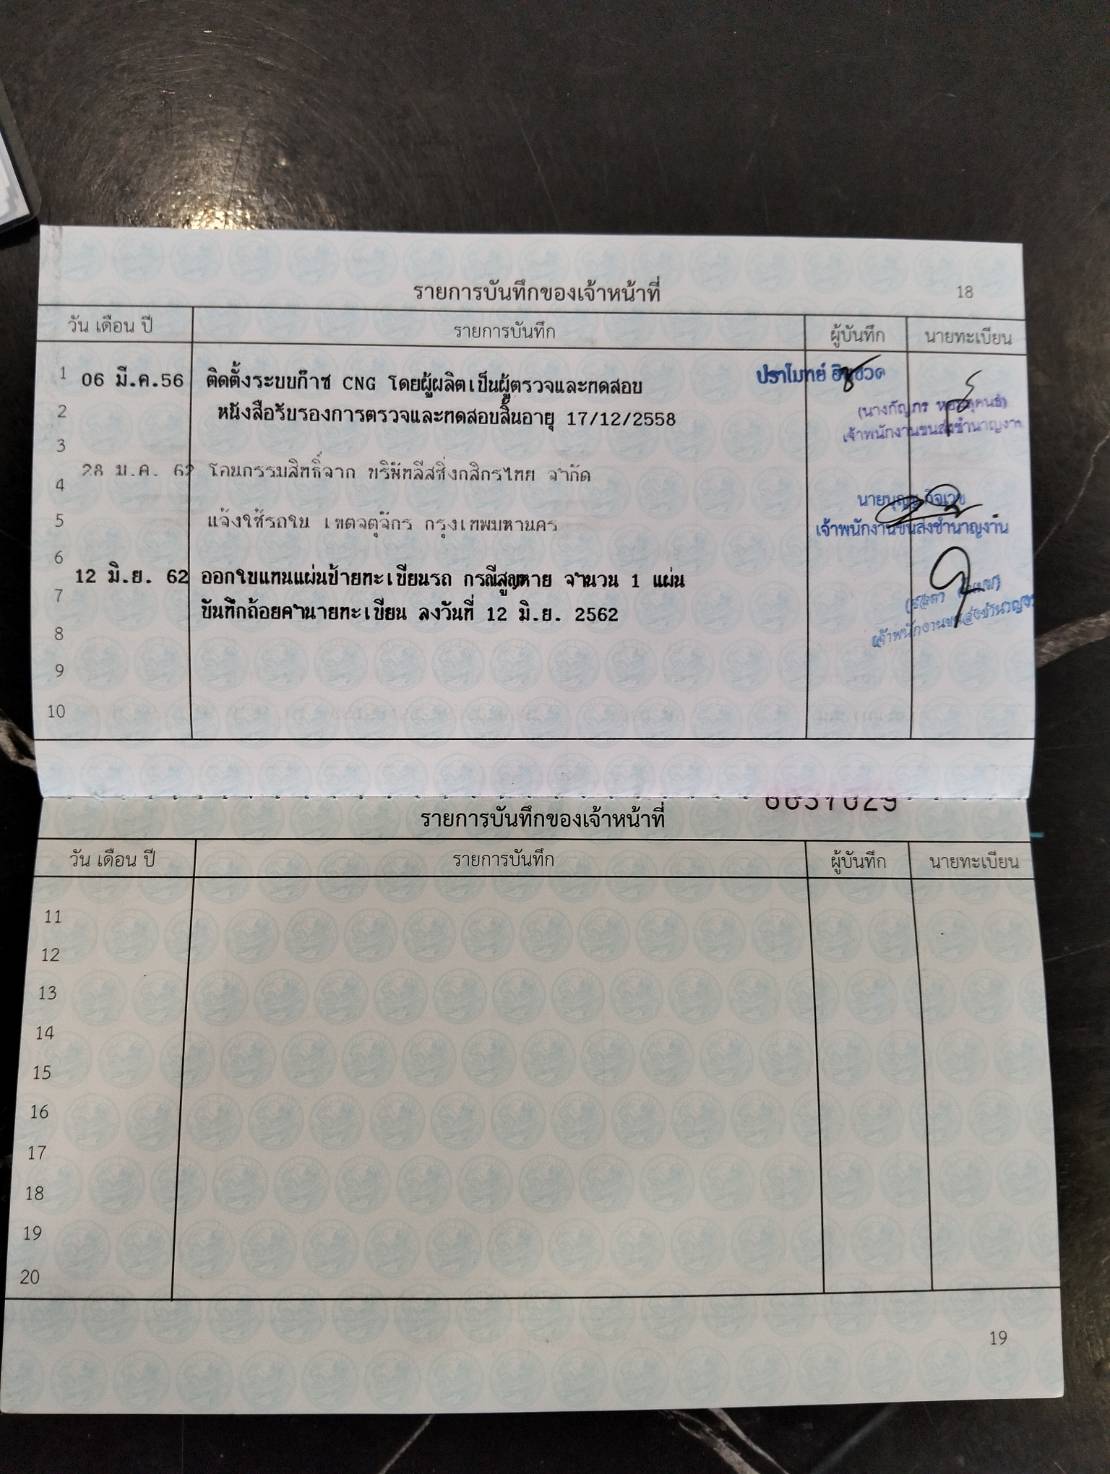 รายการบันทึกของเจ้าหน้าที่ 18
วัน เดือน ปี รายการบันทึก ผู้บันทึก นายทะเบียน
1 06 มี.ค.56 ติดตั้งระบบก๊าซ CNG โดยผู้ผลิตเป็นผู้ตรวจและทดสอบ ปราโมทย์
2 หนังสือรับรองการตรวจและทดสอบสิ้นอายุ 17/12/2558
เจ้าพนักงานขนส่งชำนาญงาน
3
28 ม.ค. 62 โอนกรรมสิทธิ์จาก บริษัทลีสซิ่งกสิกรไทย จำกัด
4
5 แจ้งใช้รถใน เขตจตุจักร กรุงเทพมหานคร
เจ้าพนักงานขนส่งชำนาญงาน
6
12 มิ.ย. 62 ออกใบแทนแผ่นป้ายทะเบียนรถ กรณีสูญหาย จำนวน 1 แผ่น
7 บันทึกถ้อยคำนายทะเบียน ลงวันที่ 12 มิ.ย. 2562
เจ้าพนักงานขนส่งชำนาญงาน
8
9
10
6031029
รายการบันทึกของเจ้าหน้าที่
วัน เดือน ปี รายการบันทึก ผู้บันทึก นายทะเบียน
11
12
13
14
15
16
17
18
19
20
19